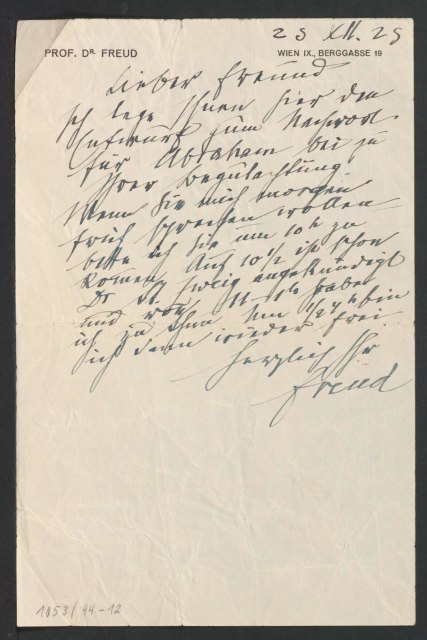 25 XII. 25
PROF. DR. FREUD
WIEN IX., BERGGASSE 19
Lieber Freund
Ich lege Ihnen hier den
Entwurf zum Nachruf
für Abraham bei zu
Ihrer Begutachtung
Wenn Sie mich morgen
früh sprechen wollen
bitte ich Sie um 10h zu
komen. Auf 10½ ist schon
Dr St. Zweig angekündigt
und von 11-1h habe
ich zu thun. Um ½2h bin
ich dann wieder frei
Herzlich Ihr
Freud
1053/44-12